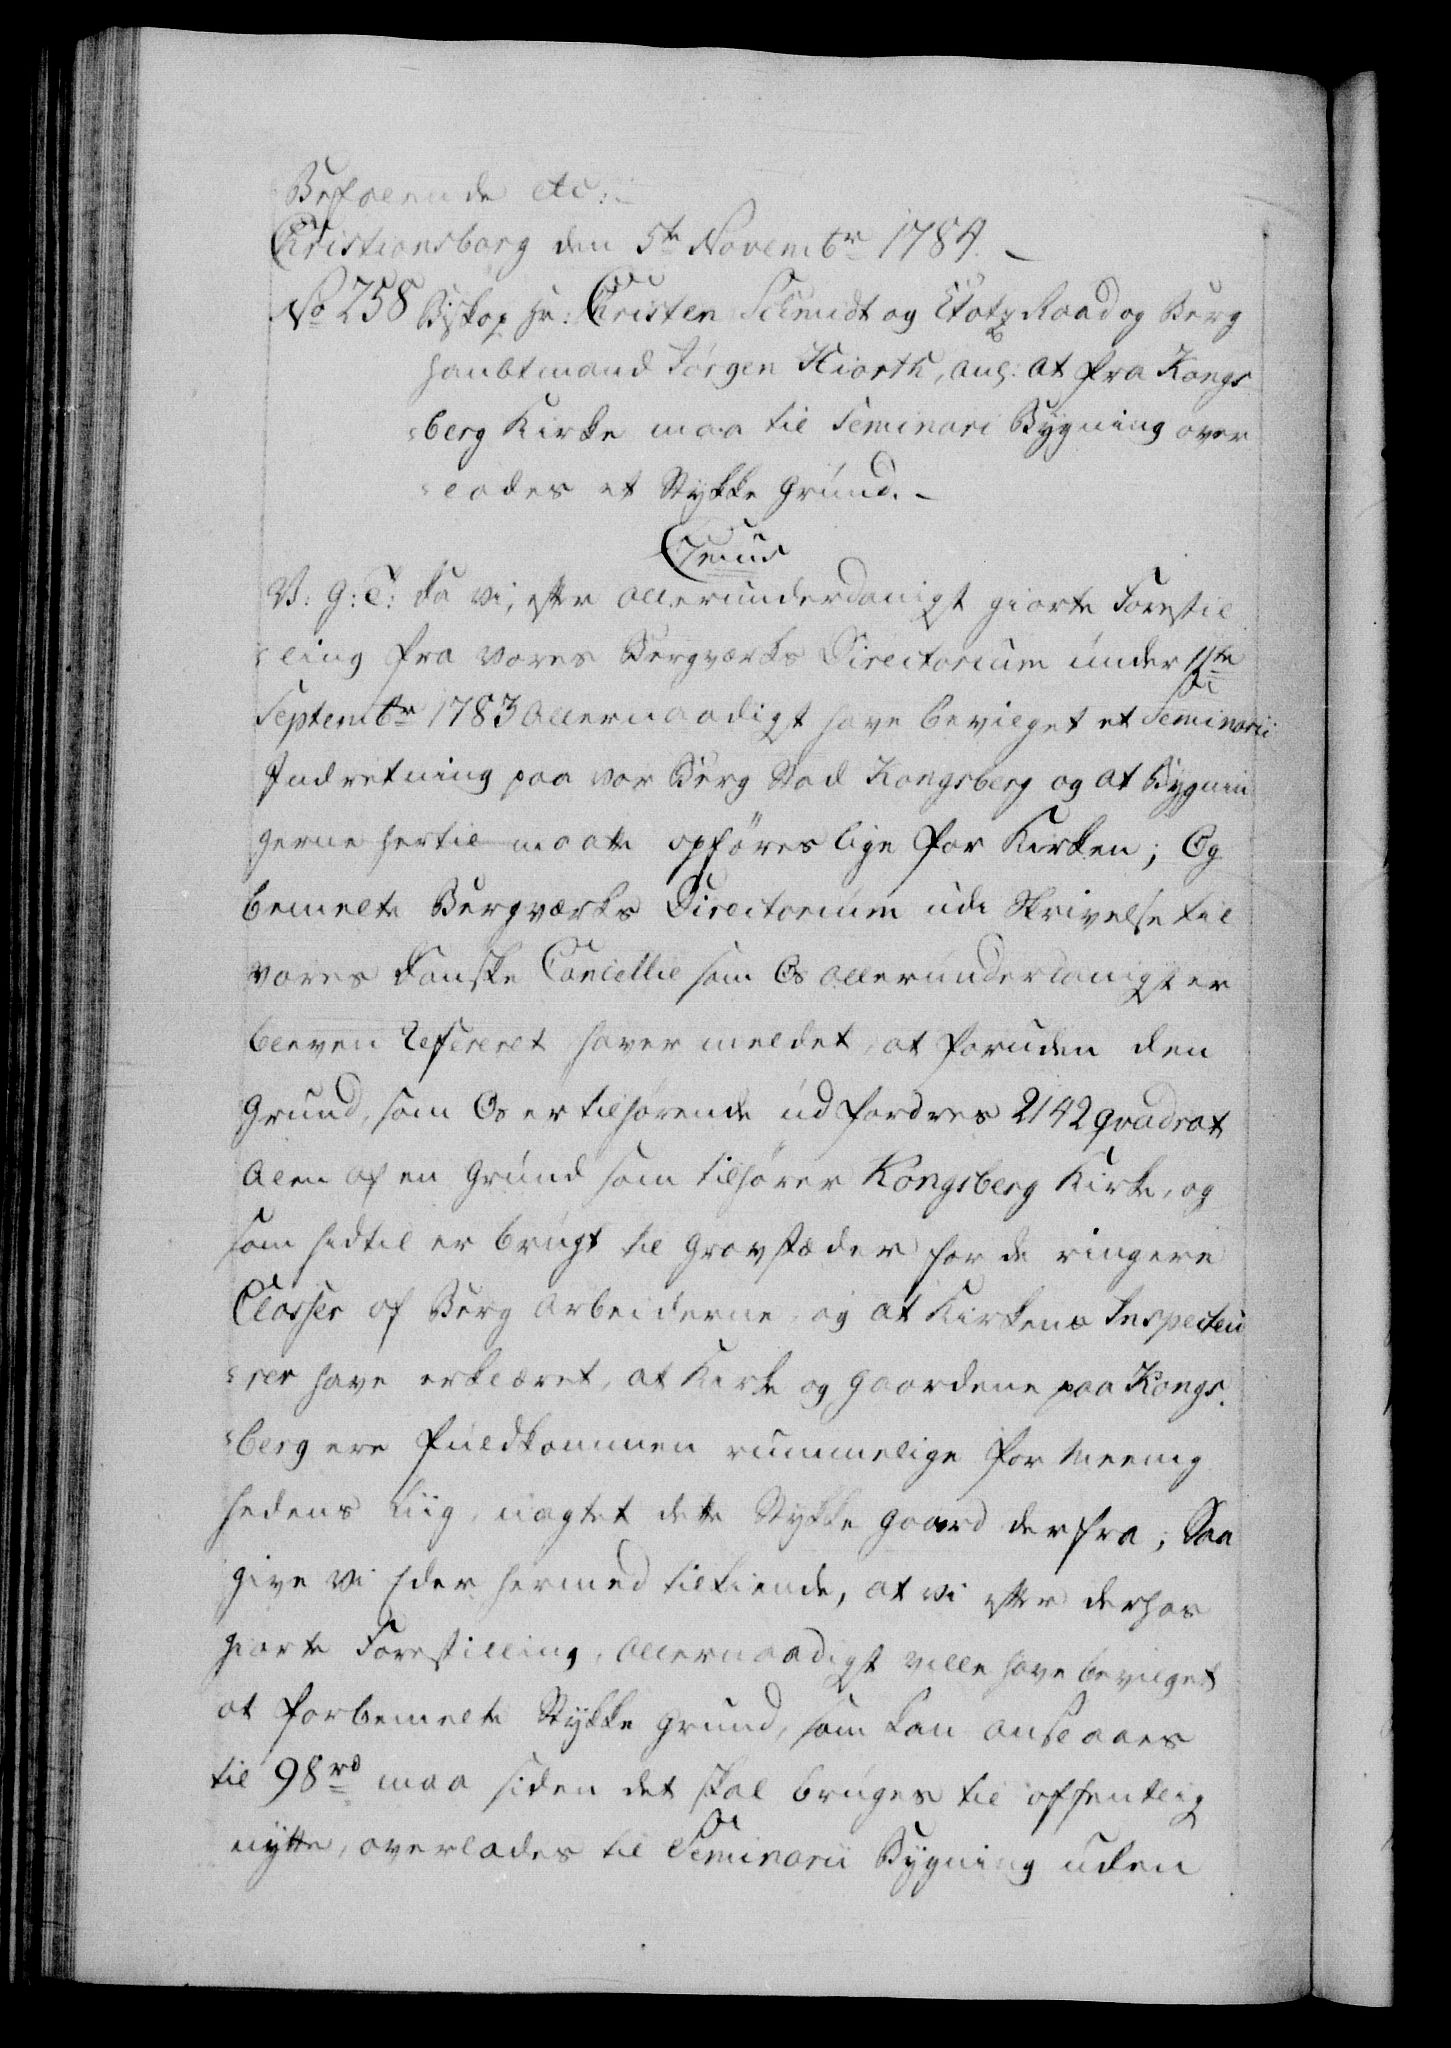 Befalende etc:
Christiansborg den 5te Novembr 1784. –
No 758 Biskop Hr: Christen Schmidt og Etatz Raad og Berg
haubtmand Jørgen Hiorth, ang: at fra Kongs
-berg Kirke maa til Seminari Bygning over
-lades et Stykke Grund. –
V: G: T: Da vi, efter allerunderdanigst giorte Forestil
-ling fra vores Bergværks Directorium under 11te
Septembr 1783 allernaadigst have bevilget et Seminarii
Indretning paa vor Berg Stad Kongsberg og at Bygnin
gerne hertil maatte opføres lige for Kirken; Og
bemelte Bergværks Directorium udi Skrivelse til
vores danske Cancellie som Os allerunderdanigst er
bleven refereret haver meldet, at foruden den
Grund, som Os er tilhørende udfordres 2142 qvadrat
Alen af en Grund som tilhører Kongsberg Kirke, og
som hidtil er brugt til Gravstæder for de ringere
Classer af Berg Arbeiderne, og at Kirkens Inspecteu
-rer have erklæret, at Kirke og Gaardene paa Kongs
-berg ere fuldkommen rummelige for Meenig
hedens Liig, uagtet dette Stykke Gaard derfra; Saa
give vi Eder hermed tilkiende, at vi efter derhos
giorte Forestilling, allernaadigst ville have bevilget
at forbemelte Stykke Grund, som kan ansaaes
til 98 rd maa siden det skal bruges til offentlig
nytte, overlades til Seminarii Bygning uden